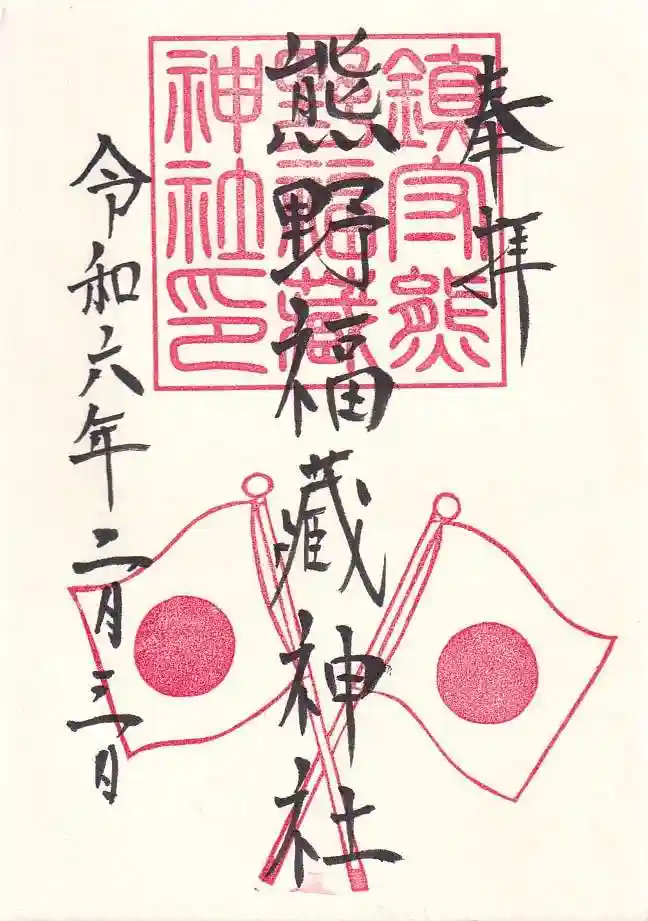 奉拝
熊野福藏神社
令和六年二月三日
鎮守熊
野福藏
神社印